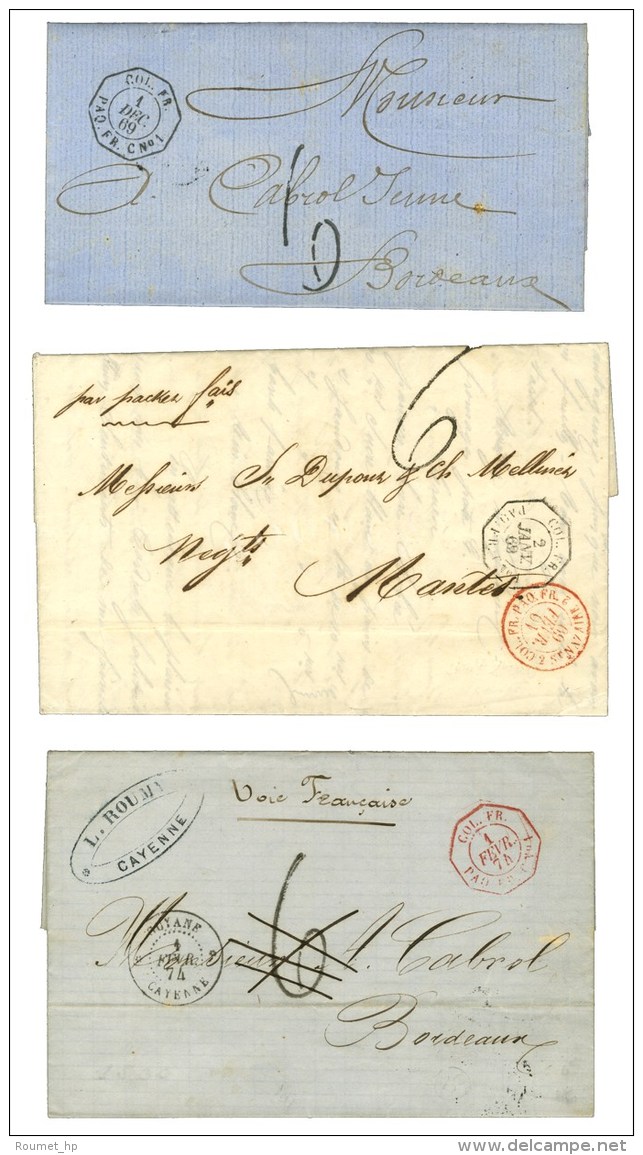 COL. FR.
1
DÉC.
69
PAQ. FR. C No 1
Monsieur
A. Cabrol Jeune
6
Bordeaux
6
par packet fais
Messieurs Sn Dupour & Ch. Mellinet
COL. FR.
2
JANV.
69
Negts
Nantes
COL. FR. PAQ. FR. 2 S NAZAIRE 2
FEVR.
69
L. ROUMY
CAYENNE
Voie Française
COL. FR.
1
FEVR.
74
PAQ. FR. C No 1
6
GUYANE
1
FEVR.
74
CAYENNE
Monsieur A. Cabrol
Bordeaux
Roumet_hp
www.delcampe.net